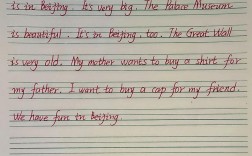 is in Beijing. It's very big. The Palace Museum
is beautiful. It's in Beijing, too. The Great Wall
is very old. My mother wants to buy a shirt for
my father. I want to buy a cap for my friend.
We have fun in Beijing.